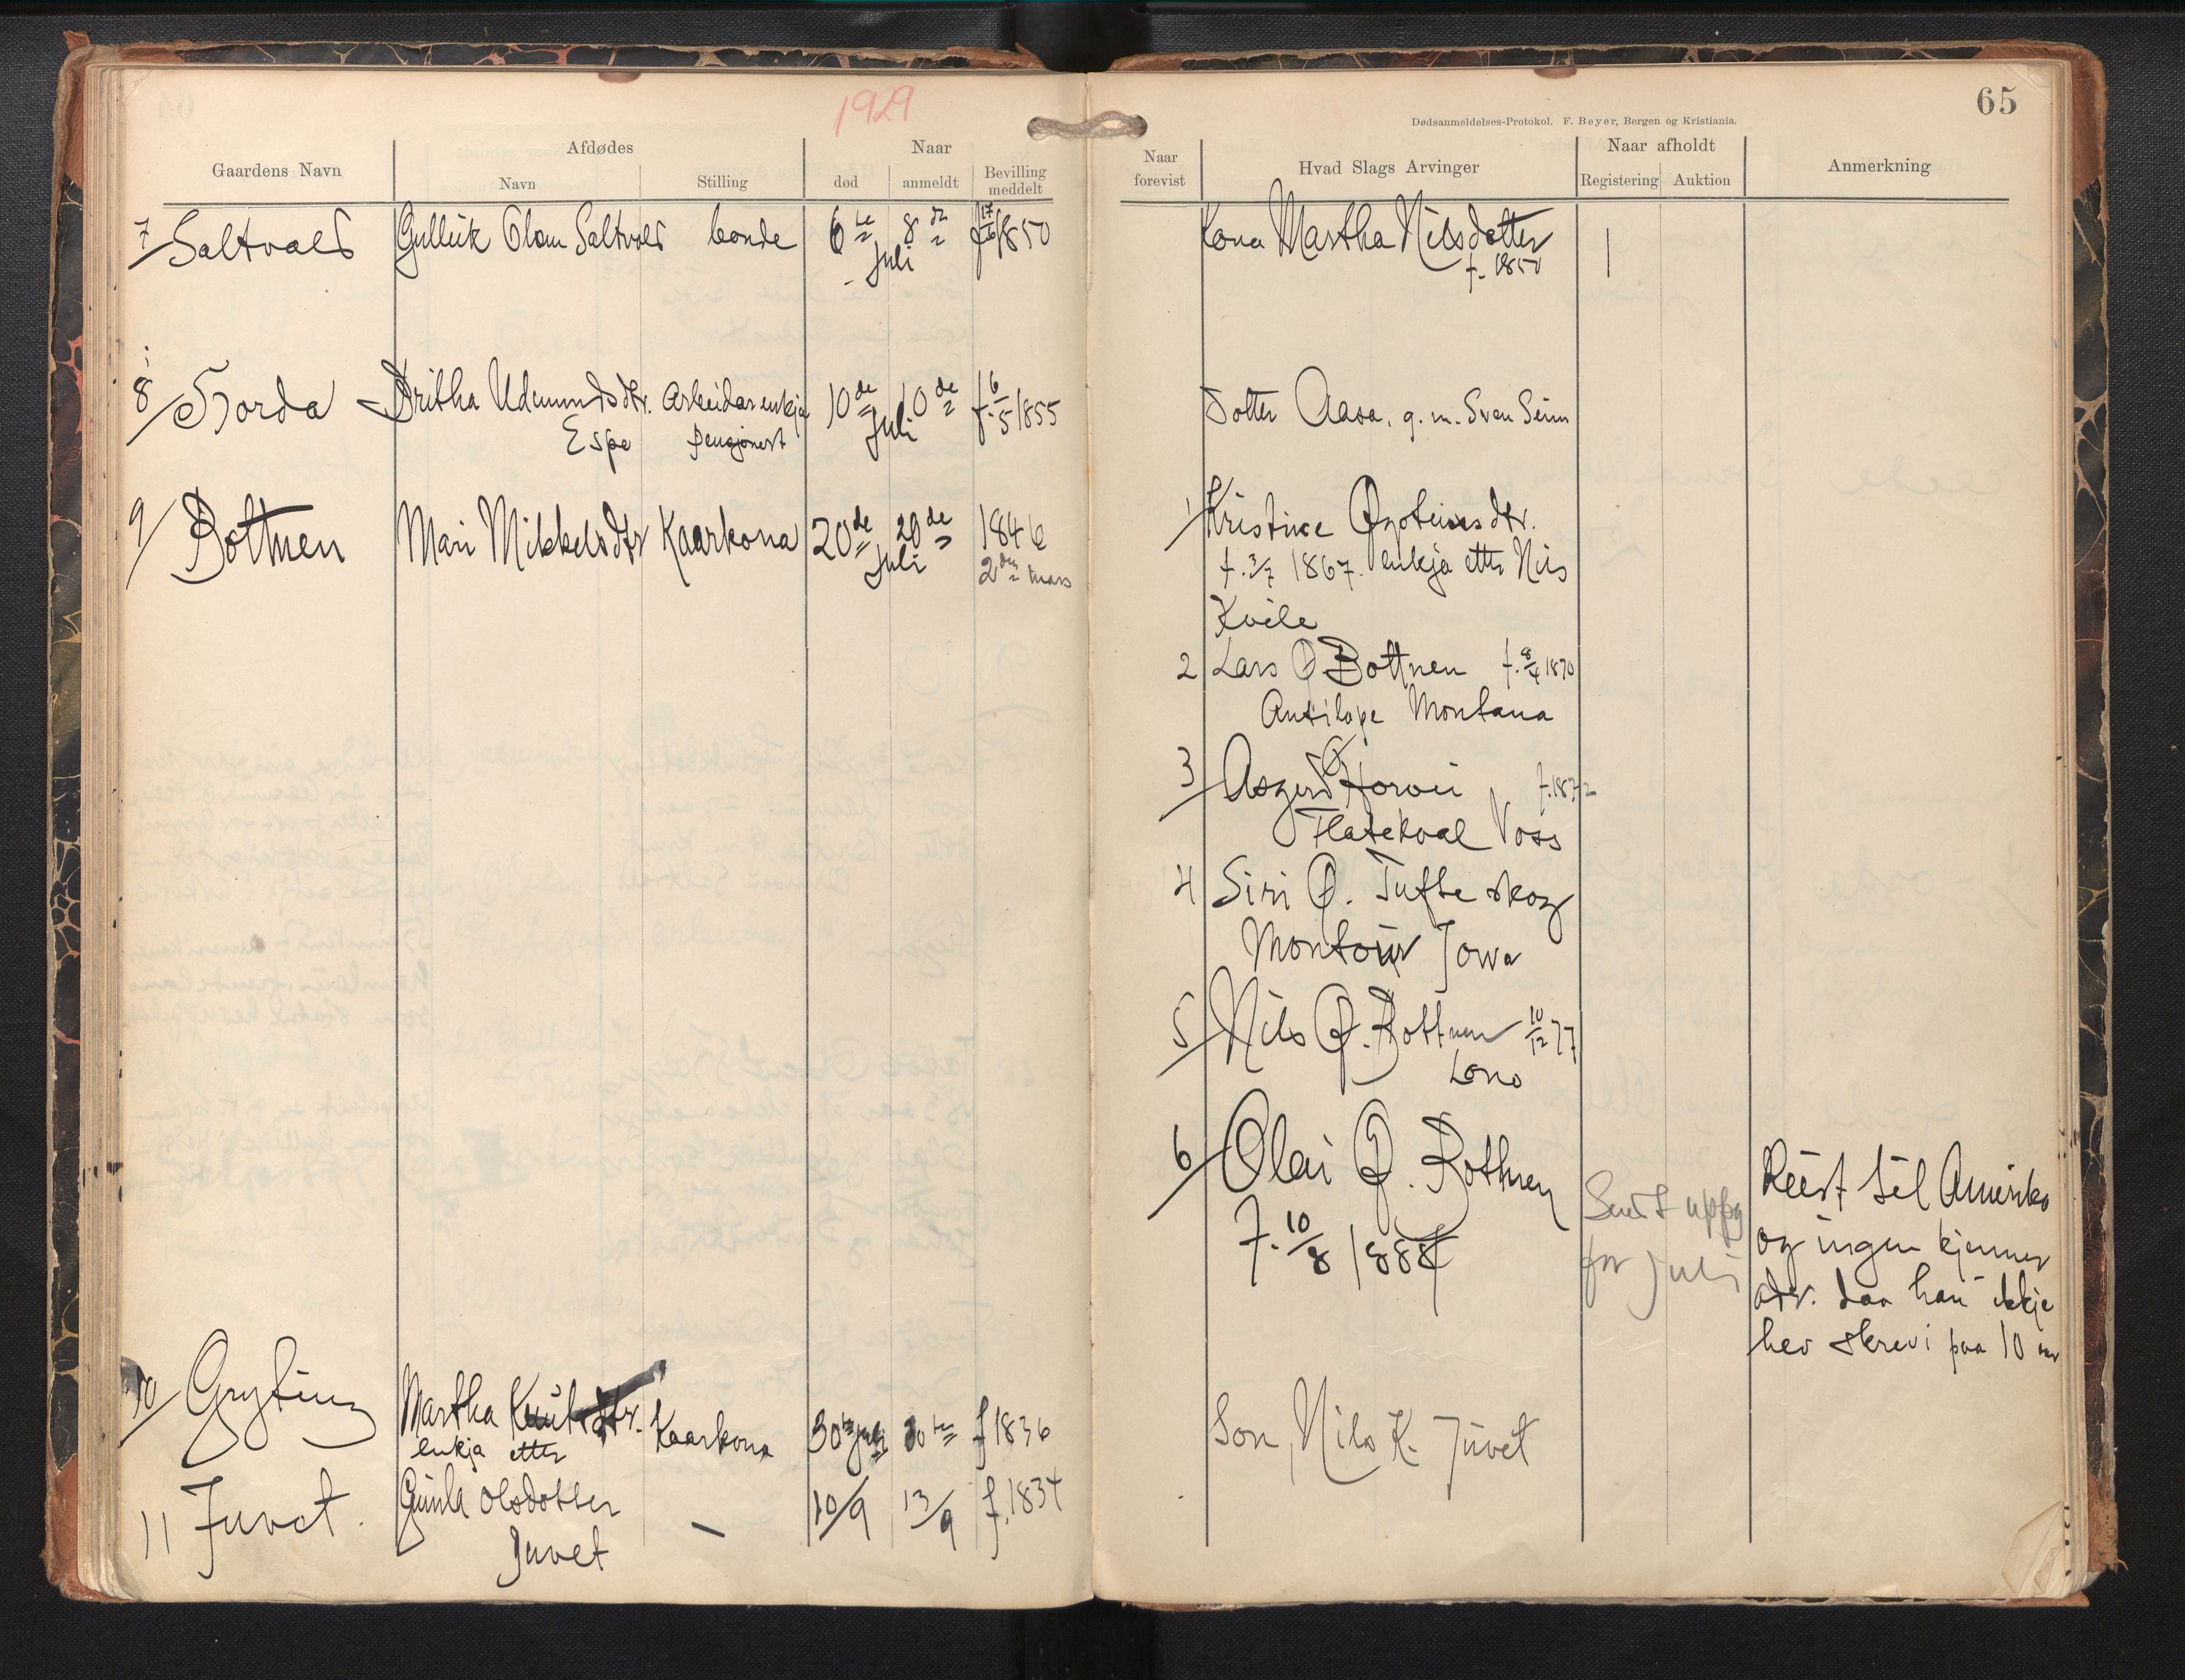 1929
Afdødes
Naar
Gaardens Navn
Navn
Stilling
død
anmeldt
Bevilling meddelt
7 Saltvold Gulleik Olsen Saltvold bonde 6te 8de f 17/6 1850
Juli
8 Horda Britha Udmundsdtr. Arbeidarenkja 10de 10de f. 6/5 1855
Espe pensjonert Juli
9 Bottnen Mari Mikkelsdtr Kaarkona 20de 20de 1846
Juli 2den mars
10 Gryting Martha Knutsdtr. Kaarkona 30te juli 30te f 1836
enkja etter
11 Juvet. Gunla Olsdotter — 10/9 13/9 f. 1834
Juvet
65
Dødsanmeldelses-Protokol. F. Beyer, Bergen og Kristiania.
Naar forevist
Hvad Slags Arvinger
Naar afholdt
Registering
Auktion
Anmerkning
Kona Martha Nilsdotter
f. 1850
Dotter Aasa. g. m. Sven Seim
1 Kristine Øysteinsdtr.
f. 3/7 1867. enkja etter Nils
Kvile
2 Lars Ø Bottnen f. 8/4 1870
Antilope Montana
3 Asgerd Ø Horvei f. 1872
Flatekval Voss
4 Siri Ø. Tufteskog
Montour Jowa
5 Nils Ø. Bottnen 10/12 77
Lono
6 Olai Ø. Bottnen
f. 10/8 1884
Sendt uppg
for Juli
Reist til Amerika
og ingen kjenner
adr. daa han ikkje
hev skrevi paa 10 aar
Son, Nils K. Juvet